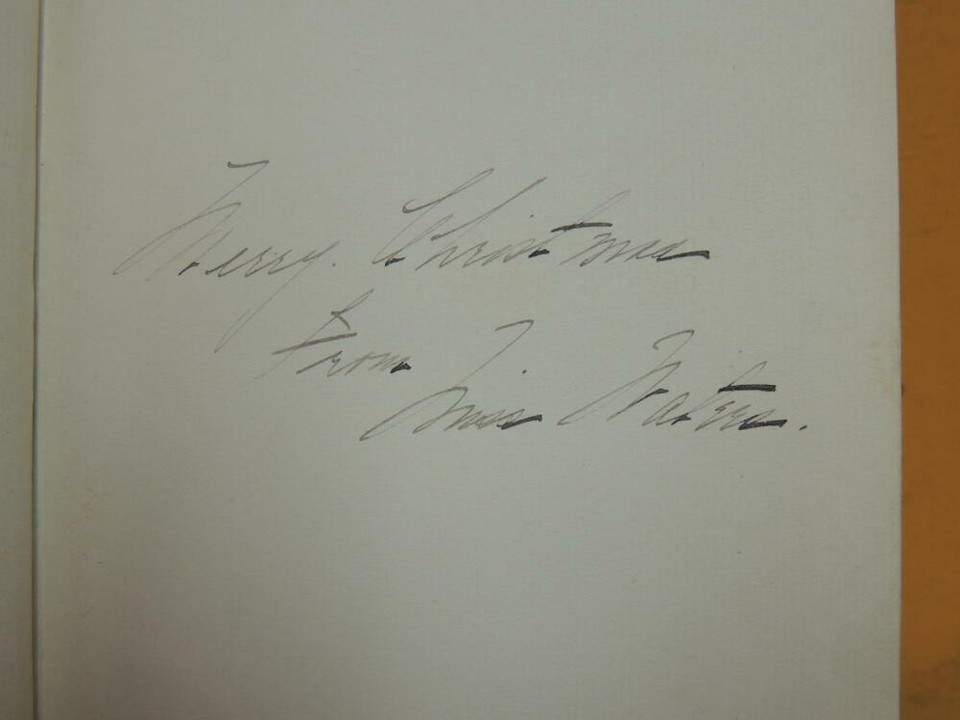 Merry Christmas
From
Miss Waters.